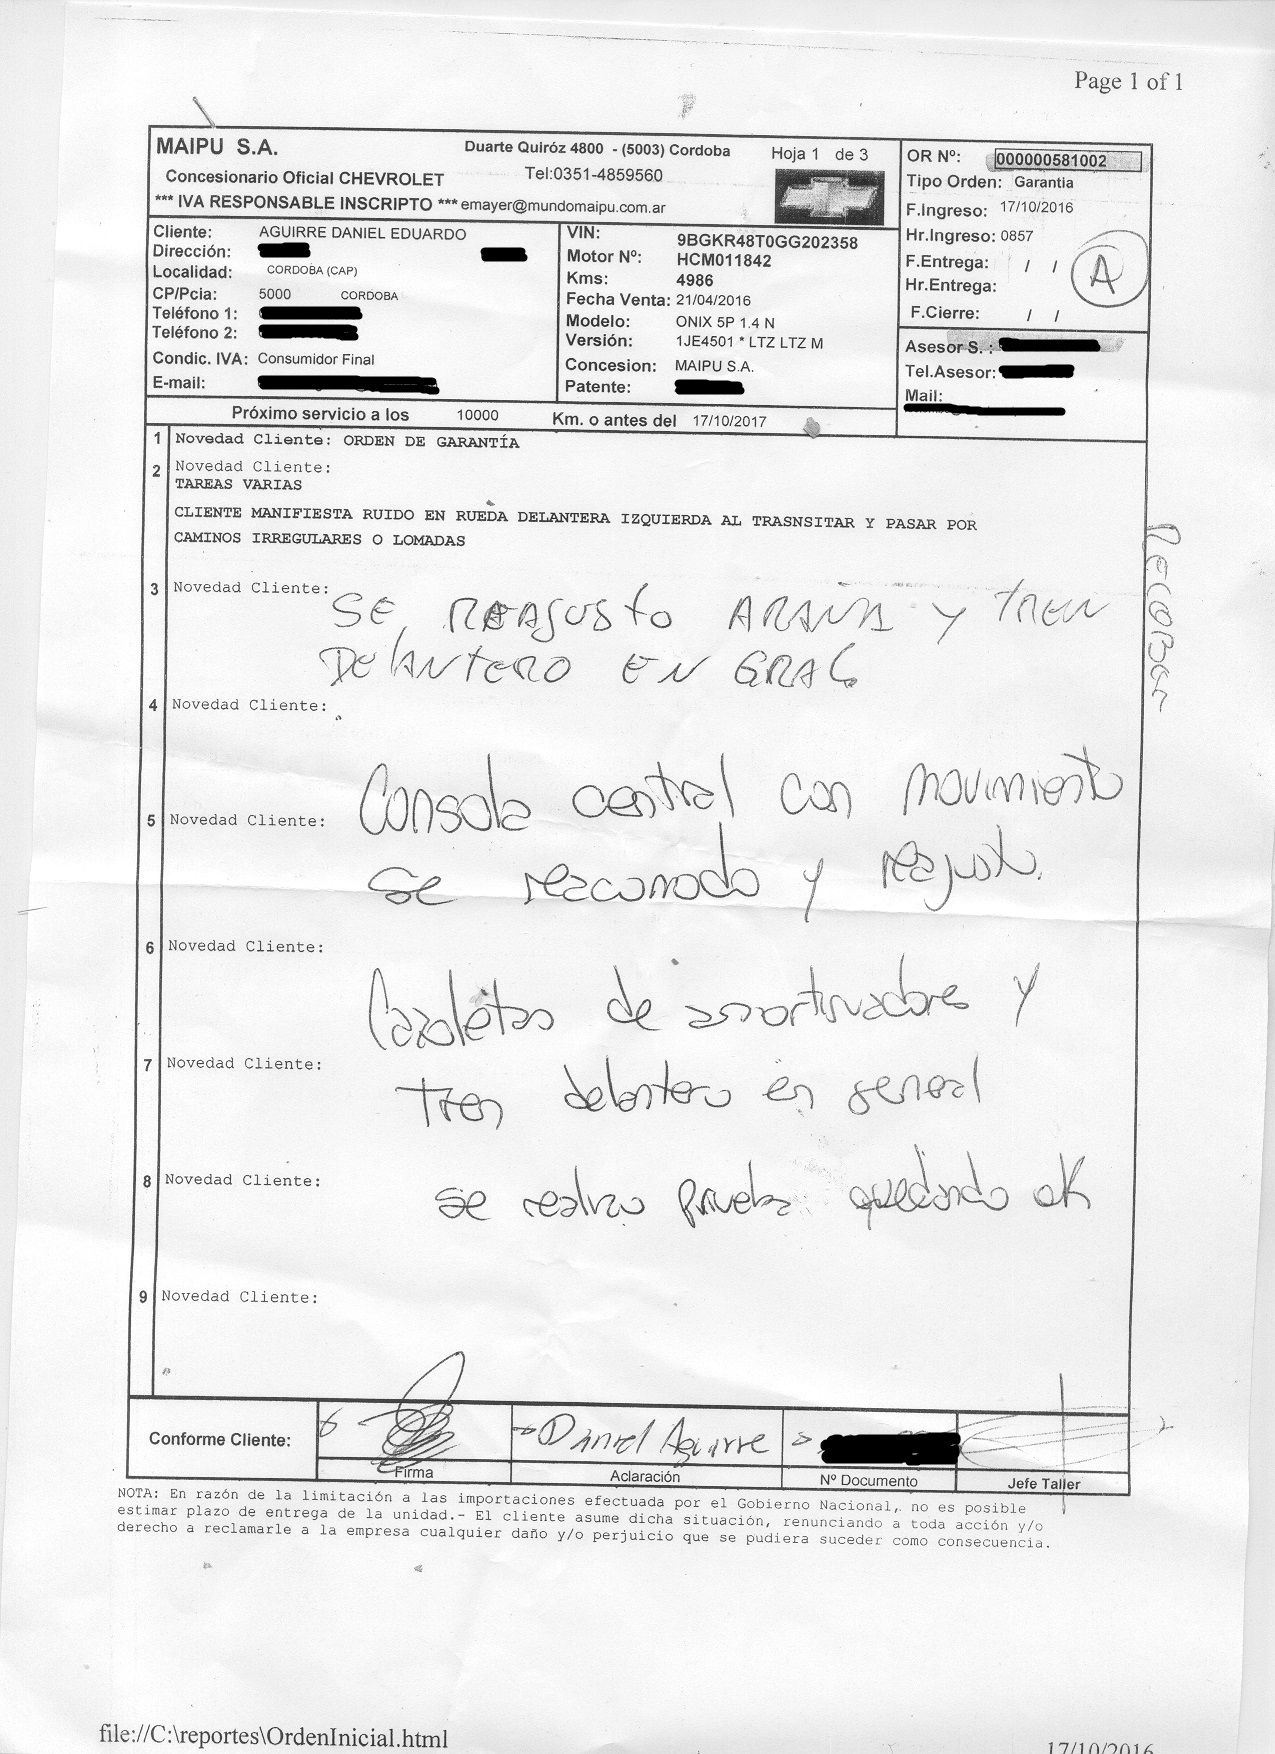 Page 1 of 1
MAIPU S.A.
Duarte Quiróz 4800 - (5003) Cordoba
Hoja 1 de 3
Concesionario Oficial CHEVROLET
Tel:0351-4859560
*** IVA RESPONSABLE INSCRIPTO *** emayer@mundomaipu.com.ar
OR Nº: 000000581002
Tipo Orden: Garantia
F.Ingreso: 17/10/2016
Hr.Ingreso: 0857
F.Entrega: / /
Hr.Entrega:
A
F.Cierre: / /
Cliente: AGUIRRE DANIEL EDUARDO
Dirección:
Localidad: CORDOBA (CAP)
CP/Pcia: 5000 CORDOBA
Teléfono 1:
Teléfono 2:
Condic. IVA: Consumidor Final
E-mail:
VIN: 9BGKR48T0GG202358
Motor Nº: HCM011842
Kms: 4986
Fecha Venta: 21/04/2016
Modelo: ONIX 5P 1.4 N
Versión: 1JE4501 * LTZ LTZ M
Concesion: MAIPU S.A.
Patente:
Asesor S. :
Tel.Asesor:
Mail:
Próximo servicio a los 10000 Km. o antes del 17/10/2017
1 Novedad Cliente: ORDEN DE GARANTÍA
2 Novedad Cliente:
TAREAS VARIAS
CLIENTE MANIFIESTA RUIDO EN RUEDA DELANTERA IZQUIERDA AL TRASNSITAR Y PASAR POR
CAMINOS IRREGULARES O LOMADAS
3 Novedad Cliente:
SE REAJUSto ARAÑA y TREN
DELANTERO EN GRAL
4 Novedad Cliente:
Consola central con movimiento
5 Novedad Cliente:
se reacomodo y reajusto.
6 Novedad Cliente:
Cazoletas de amortiguadores y
7 Novedad Cliente:
tren delantero en general
8 Novedad Cliente:
se realizo prueba quedando ok
9 Novedad Cliente:
Conforme Cliente:
Daniel Aguirre
Firma
Aclaración
Nº Documento
Jefe Taller
NOTA: En razón de la limitación a las importaciones efectuada por el Gobierno Nacional, no es posible
estimar plazo de entrega de la unidad.- El cliente asume dicha situación, renunciando a toda acción y/o
derecho a reclamarle a la empresa cualquier daño y/o perjuicio que se pudiera suceder como consecuencia.
file://C:\reportes\OrdenInicial.html
17/10/2016